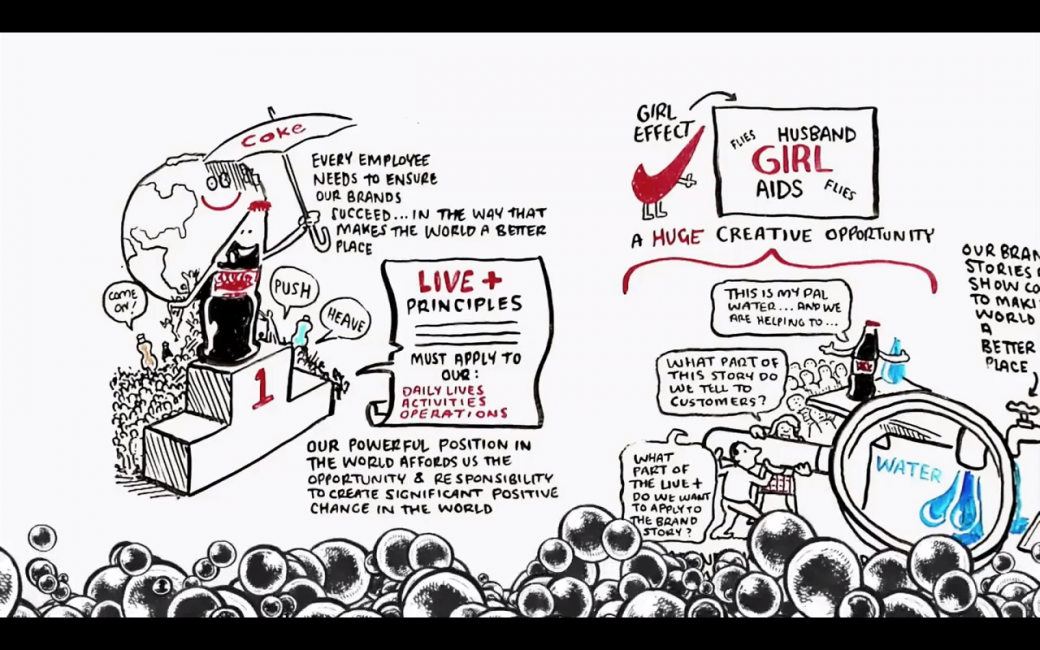 Coke
EVERY EMPLOYEE
NEEDS TO ENSURE
OUR BRANDS
SUCCEED... IN THE WAY THAT
MAKES THE WORLD A BETTER
PLACE
COME
ON!
PUSH
HEAVE
1
LIVE +
PRINCIPLES
MUST APPLY TO
OUR:
DAILY LIVES
ACTIVITIES
OPERATIONS
OUR POWERFUL POSITION IN
THE WORLD AFFORDS US THE
OPPORTUNITY & RESPONSIBILITY
TO CREATE SIGNIFICANT POSITIVE
CHANGE IN THE WORLD
GIRL
EFFECT
FLIES
HUSBAND
GIRL
AIDS
FLIES
A HUGE CREATIVE OPPORTUNITY
THIS IS MY PAL
WATER... AND WE
ARE HELPING TO...
WHAT PART OF
THIS STORY DO
WE TELL TO
CUSTOMERS?
WHAT
PART OF
THE LIVE+
DO WE WANT
TO APPLY TO
THE BRAND
STORY?
WATER
OUR BRAN
STORIES
SHOW CO
TO MAKI
WORLD
A
BETTER
PLACE